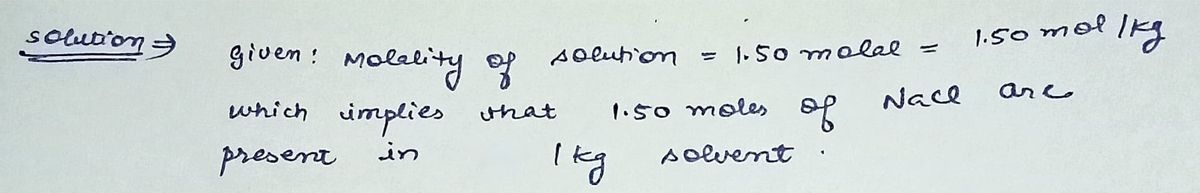 solution ⇒ given: Molality of solution = 1.50 molal = 1.50 mol/kg
which implies that 1.50 moles of Nacl are
present in 1 kg solvent.